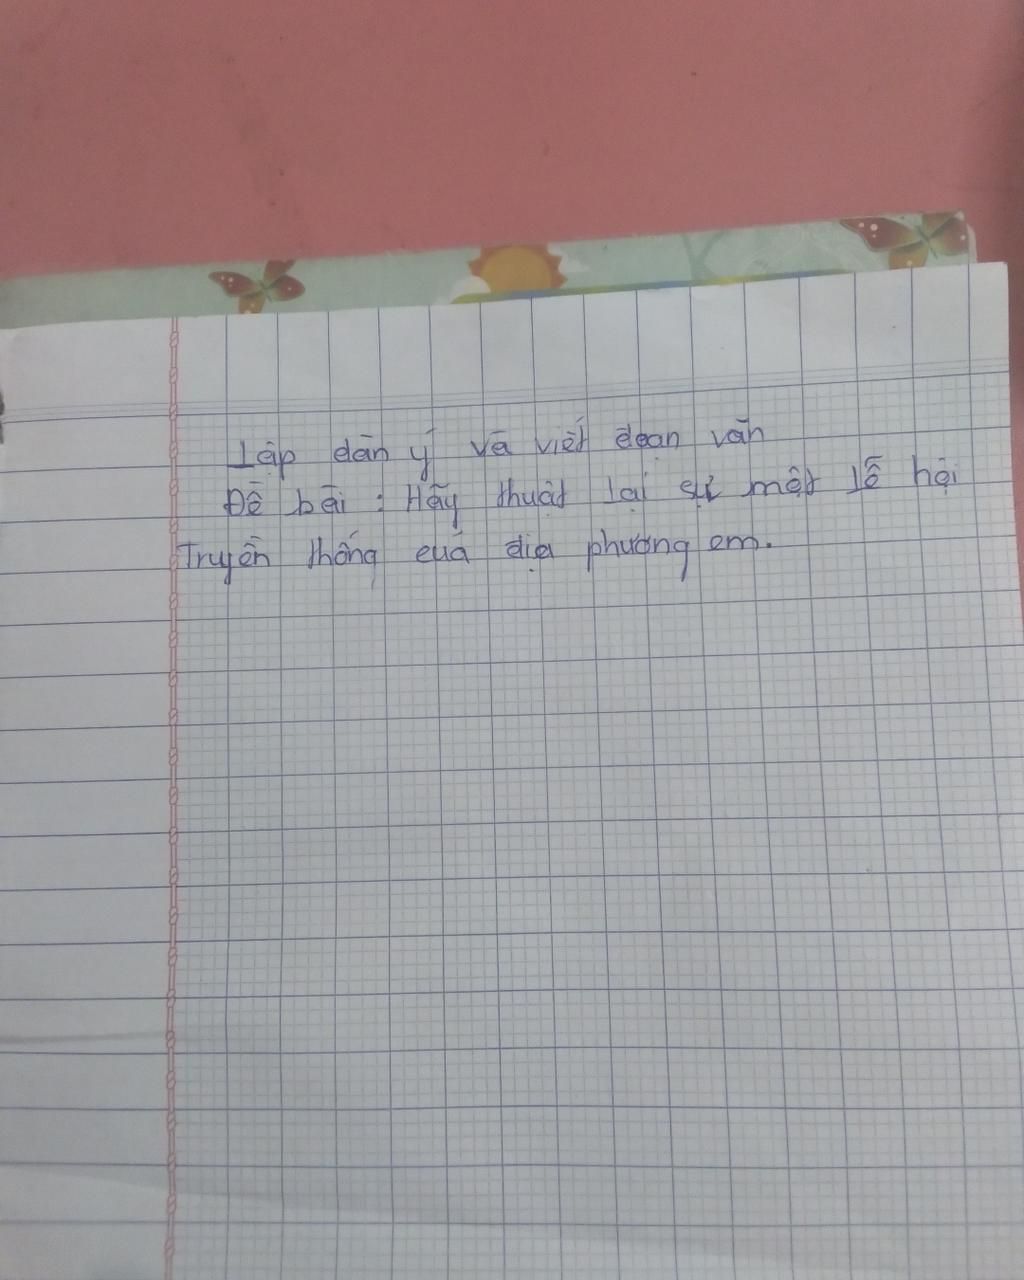 Lập dàn ý và viết đoạn văn
Đề bài : Hãy thuật lại sự một lễ hội
Truyền thống của địa phương em.